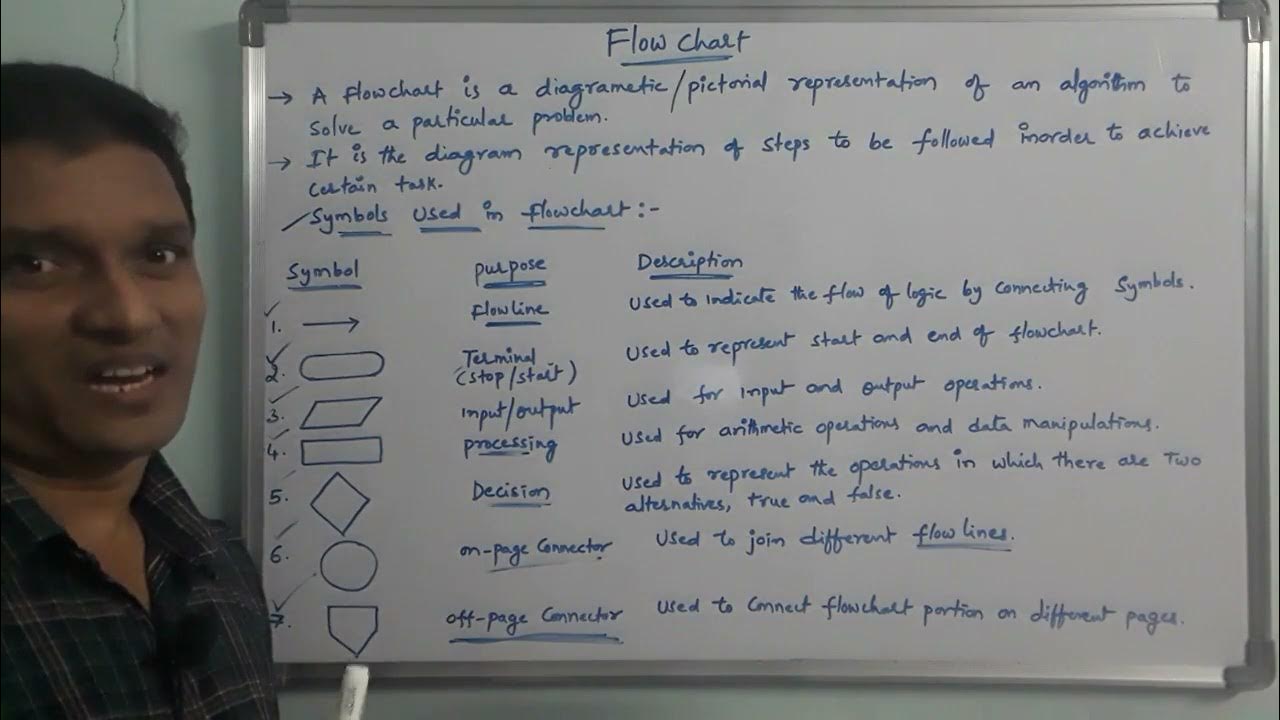 Flow chart
→ A flowchart is a diagrametic/pictorial representation of an algorithm to
solve a particular problem.
→ It is the diagram representation of steps to be followed inorder to achieve
certain task.
Symbols used in flowchart:-
Symbol purpose Description
1. Flowline Used to indicate the flow of logic by connecting symbols.
2. Terminal Used to represent start and end of flowchart.
(stop/start)
3. input/output Used for input and output operations.
4. processing Used for arithmetic operations and data manipulations.
5. Decision Used to represent the operations in which there are two
alternatives, true and false.
6. on-page Connector Used to join different flowlines.
7. off-page Connector Used to connect flowchart portion on different pages.